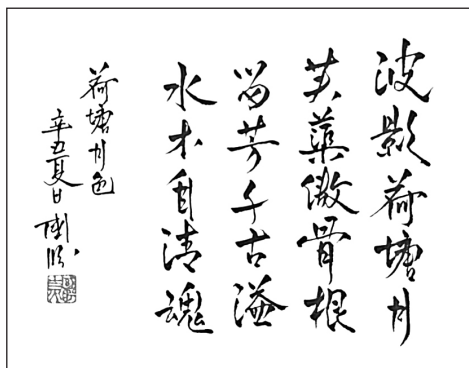 波影荷塘月
芙蕖傲骨根
留芳千古溢
水木自清魂
荷塘月色
辛丑夏日